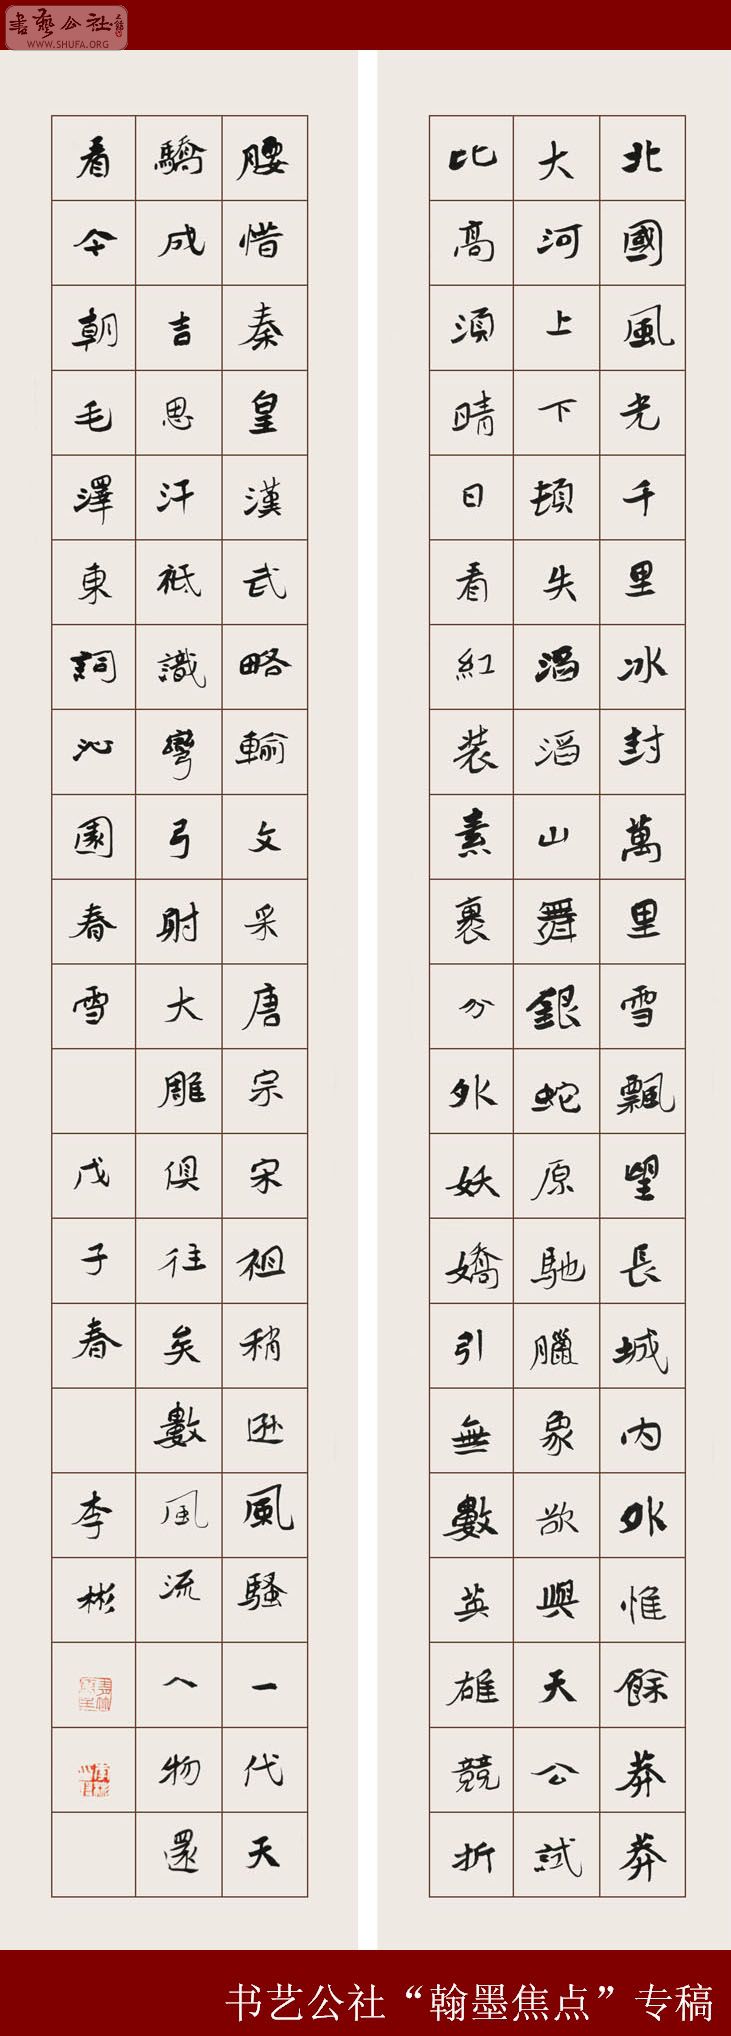 書藝公社
WWW.SHUFA.ORG
北國風光千里冰封萬里雪飄望長城內外惟餘莽莽
大河上下頓失滔滔山舞銀蛇原馳臘象欲與天公試
比高須晴日看紅装素裹分外妖嬌引無數英雄競折
腰惜秦皇漢武略輸文采唐宗宋祖稍遜風騷一代天
驕成吉思汗衹識彎弓射大雕俱往矣數風流人物還
看今朝毛澤東詞沁園春雪 戊子春 李彬
书艺公社“翰墨焦点”专稿